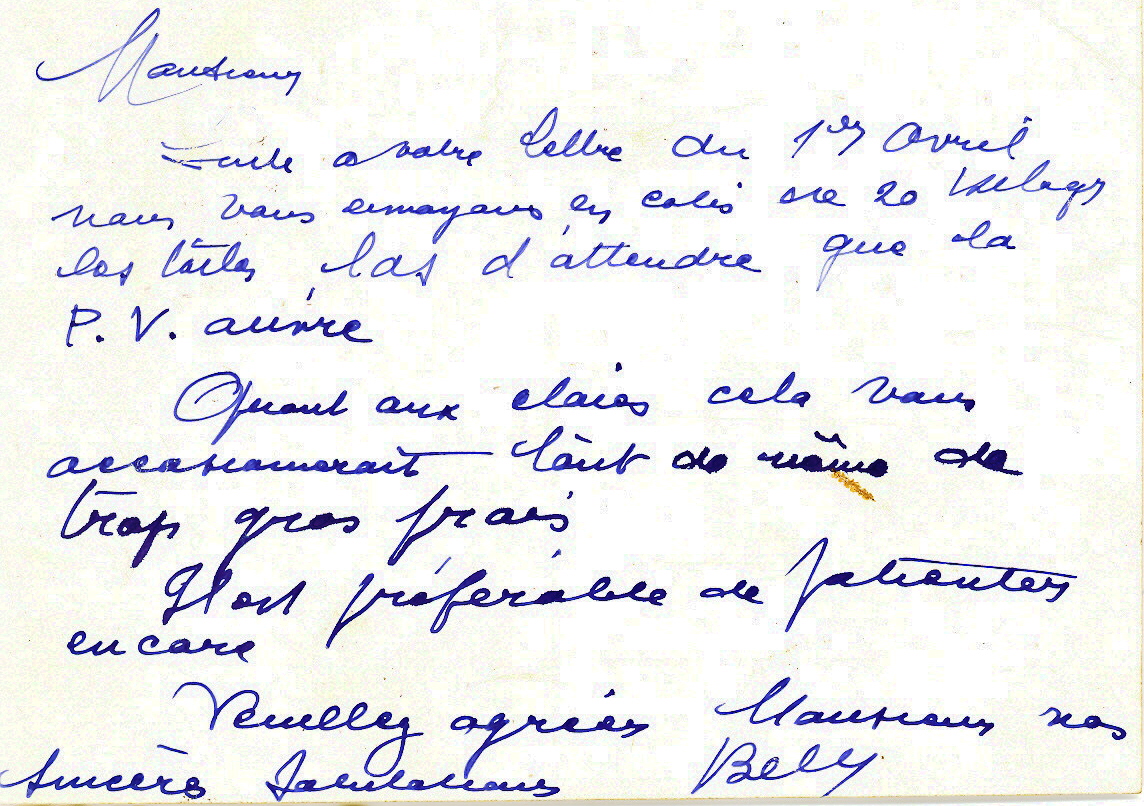 Monsieur
Suite a votre lettre du 1er Avril
nous vous envoyons en colis de 20 Kilogs
les toiles, las d'attendre que la
P. V. ouvre
Quant aux claies cela vous
occasionnerait tout de même de
trop gros frais
Il est préférable de patienter
encore
Veuillez agréer Monsieur nos
sincères salutations Bely